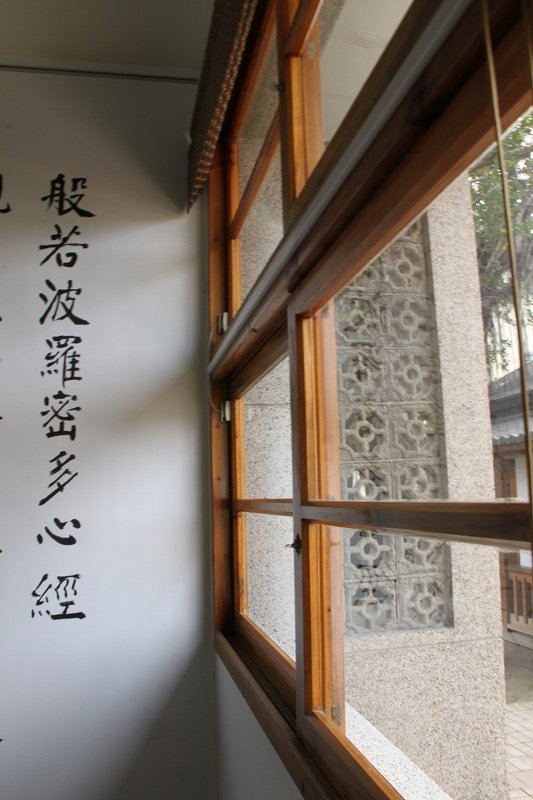 般若波羅密多心經